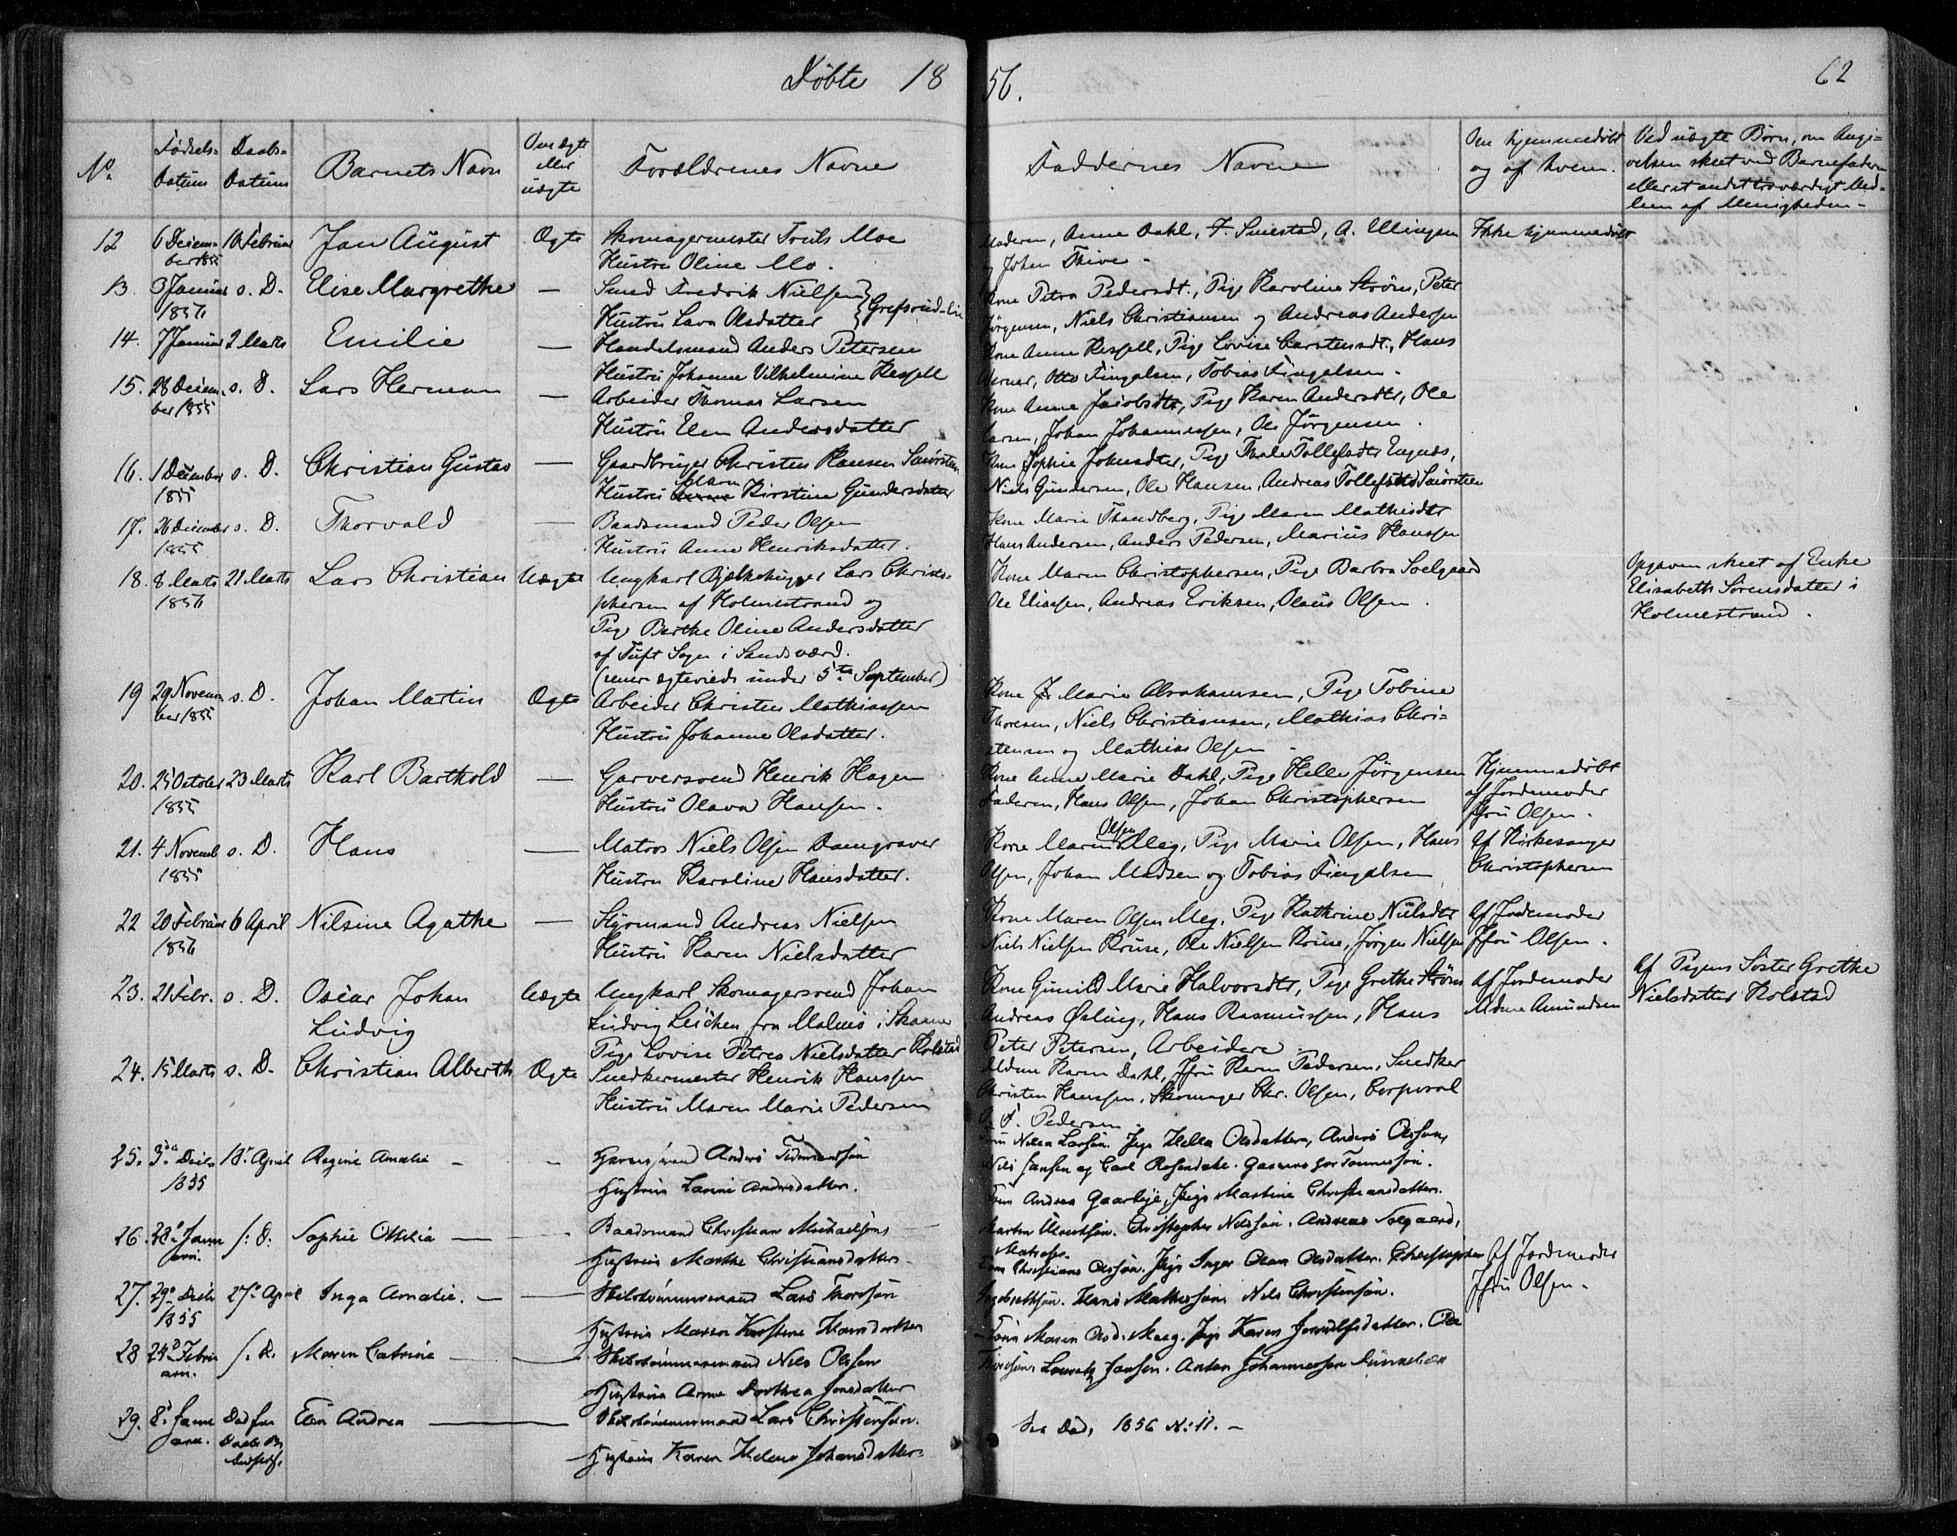 Døbte 1856.
62
No. Fødsels-Datum Daabs-Datum Barnets Navn Om ægte eller uægte Forældrenes Navne Faddernes Navne Om hjemmedøbt og af hvem. Ved uægte Børn, om Angivelsen skeet ved Barnefaderen eller et andet troværdigt Medlem af Menigheden -
12 6 December 1855 10 Februar Jan August Ægte Skomagermester Truls Moe
Hustru Oline Mo.
Moderen, Anne Dahl, F. Smestad, A. Ellingsen
og Johan Thive - Ikke hjemmedøbt
13. 3 Januar 1856 s. D. Elise Margrethe — Smed Fredrik Nielsen
Hustru Lava Olsdatter
Kone Petra Pedersdt., Pige Karoline Strøm, Peter
Jørgensen, Niels Christiansen og Andreas Andersen
14. 7 Januar 2 Marts Emilie — Handelsmand Anders Petersen
Hustru Johanne Vilhelmine Resfell
Kone Anne Resfell, Pige Lovise Carstensdt., Hans
Werner, Otto Fingalsen, Tobias Fingalsen.
15. 28 December 1855 s. D. Lars Herman — Arbeider Thomas Larsen
Hustru Elen Andersdatter
Kone Anne Jacobsdtr, Pige Karen Andersdtr, Ole
Larsen, Johan Johannessen, Ole Jørgensen.
16. 1 December 1855 s. D. Christian Gustav — Gaardbruger Christen Hansen
Hustru Maren Kirstine Gundersdatter
Kone Sophie Johnsdter, Pige Thale Tollefsdtr Engnæs,
Niels Gundersen, Ole Hansen, Andreas Tollefsen
17. 26 December 1855 s. D. Thorvald — Baadsmand Peder Olsen
Hustru Anne Henriksdatter.
Kone Marie Thandberg, Pige Maren Mathisdtr
Hans Andersen, Anders Pedersen, Marius Hanssen
18. 8 Marts 1856 21 Marts Lars Christian Uægte Ungkarl Bjelkehugger Lars Christo-
phersen af Holmestrand og
Pige Berthe Oline Andersdatter
af Tuft Sogn i Sandsværd.
(senere ægteviede under 5te September)
Kone Maren Christophersen, Pige Barbra Solgaard
Ole Eliassen, Andreas Eriksen, Olaus Olsen.
Opgaven skeet af Enke
Elisabeth Sørensdatter i
Holmestrand.
19 29 November 1855 s. D. Johan Martin Ægte Arbeider Christen Mathiassen
Hustru Johanne Olsdatter.
Kone Marie Abrahamsen, Pige Tobine
Thoresen, Niels Christiansen, Mathias Chri-
stensen og Mathias Olsen -
20. 25 October 1855 23 Marts Karl Barthold — Garversvend Henrik Hagen
Hustru Olava Hansen.
Kone Anne Marie Dahl, Pige Helle Jørgensen
Faderen, Hans Olsen, Johan Christophersen
Hjemmedøbt
af Jordemoder
Jfru Olsen.
21. 4 Novemb 1855 s. D. Hans — Matros Niels Olsen Damgraver
Hustru Karoline Hansdatter.
Kone Maren Olsen Meg, Pige Marie Olsen, Hans
Olsen, Johan Madsen og Tobias Fingalsen
Af Kirkesanger
Christophersen
22 20 Februar 1856 6 April Nilsine Agathe — Styrmand Andreas Nielsen
Hustru Karen Nielsdatter
Kone Maren Olsen Meg, Pige Kathrine Nielsdtr
Niels Nielsen Kruse, Ole Nielsen Kruse, Jørgen Nielsen
Af Jordemoder
Jfru Olsen.
23. 21 Febr. s. D. Oscar Johan
Ludvig Uægte Ungkarl Skomagersvend Johan
Ludvig Leichen fra Malmø i Skaane
Pige Lovise Petrea Nielsdatter Kolstad
Kone Gunild Marie Halvorsdtr, Pige Grethe Strøm
Andreas Øsling, Hans Rasmussen, Hans
Peter Petersen, Arbeidere
Af Jordemoder
Mdme Amundsen
Af Pigens Søster Grethe
Nielsdatter Kolstad
24. 15 Marts s. D. Christian Alberth Ægte Snedkermester Henrik Hanssen
Hustru Maren Marie Pedersen
Mdme Karen Dahl, Jfru Karen Pedersen, Snedker
Christen Hanssen, Skomager Chr. Olsen, Corporal
P. Pedersen
25. 3de Decbr 1855 18de April Regine Amalie - - Anders
Hustrue Andersdatter.
Larsen. Pige Helle Olsdatter, Anders Olsson,
Nils Jansen og Carl Rosendahl.
26. 22de Januarii. s: D: Sophie Ottilia — - Baadsmand Christian Michaelsøn
Hustrue Marthe Christiansdatter.
Andrea Pige Martine Christiansdatter.
Christopher Nilssøn. Andreas Solgaard,
Matroser.
27. 29de Decbr 1855 27de April Inga Amalie. — Skibstømmermand Lars Thorsøn
Hustrue Maren Kirstine Hansdatter
Christiane Olssøn. Pige Inger Olava Olsdatter. Christopher
Hans Mathissøn Nils Christensøn.
Af Jordemoder
Jfru Olsen.
28 24de Februarii. s. D. Maren Catrine — Skibstømmermand Nils Olssøn
Hustrue Anne Dorthea Jonsdatter
Maren Olsd. Maeg. Pige Karen Ole
Lauritz Jansen. Anton Johannessen
29. 8de Januarii. Død før Daabs Elen Andrea — Skibstømmermand Lars Christensøn.
Hustrue Karen Helene Johansdatter.
See Døde 1856 N: 11. -